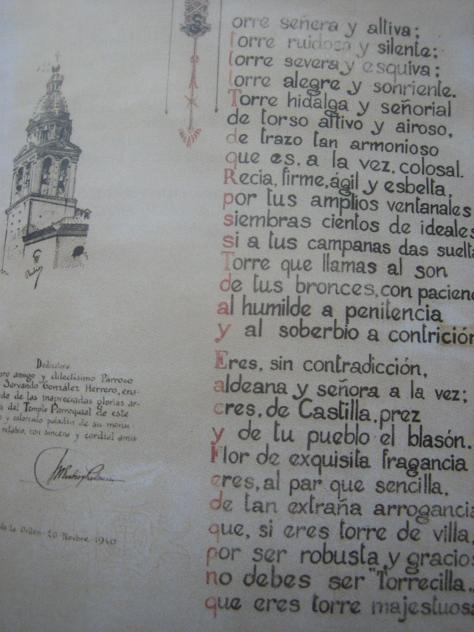 orre señera y altiva;
torre ruidosa y silente;
torre severa y esquiva;
torre alegre y sonriente.
Torre hidalga y señorial
de torso altivo y airoso,
de trazo tan armonioso
que es, a la vez, colosal.
Recia, firme, ágil y esbelta,
por tus amplios ventanales
siembras cientos de ideales
si a tus campanas das suelta
Torre que llamas al son
de tus bronces, con pacienc
al humilde a penitencia
y al soberbio a contrición
Eres, sin contradicción,
aldeana y señora a la vez;
cres, de Castilla, prez
y de tu pueblo el blasón.
Flor de exquisita fragancia
eres, al par que sencilla,
de tan extraña arrogancia
que, si eres torre de villa,
por ser robusta y gracios
no debes ser "Torrecilla..
que eres torre majestuosa
Dedicatoria
ro amigo y dilectísimo Párroco
Servando González Herrero, en
do de las inapreciadas glorias ar
a del Templo Parroquial de este
y esforzado paladín de su monu
retablo, con sincera y cordial amis
de la Orden-20 Novbre 1940